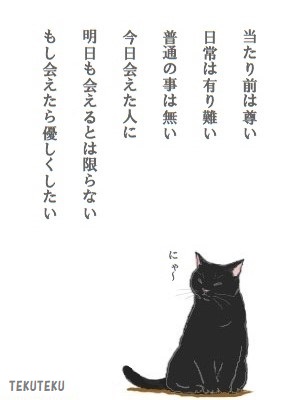 当たり前は尊い
日常は有り難い
普通の事は無い
今日会えた人に
明日も会えるとは限らない
もし会えたら優しくしたい
にゃ〜
TEKUTEKU